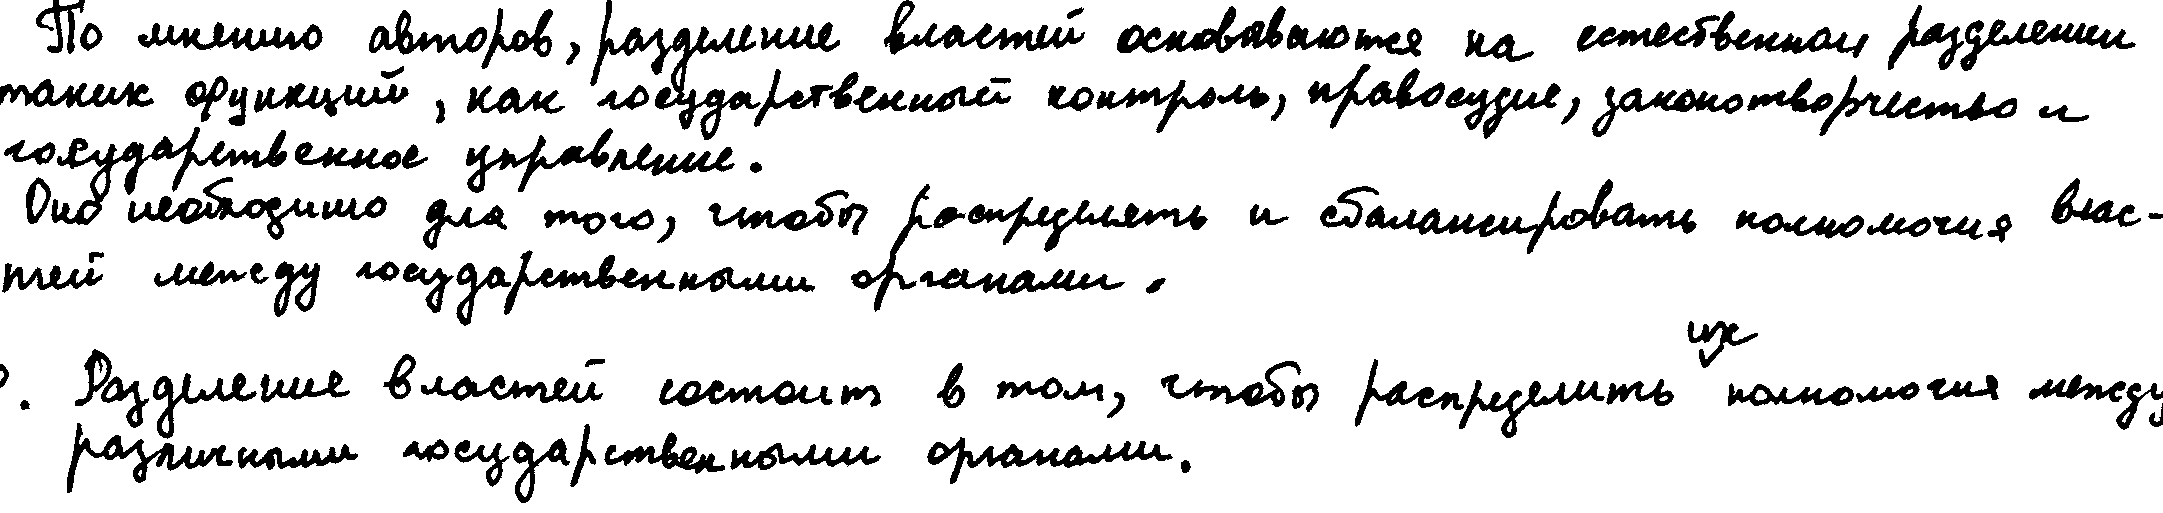 По мнению авторов, разделение властей основываются на естественном разделении
таких функций, как государственный контроль, правосудие, законотворчество и
государственное управление.
Оно необходимо для того, чтобы распределять и сбалансировать полномочия влас-
тей между государственными органами.
их
. Разделение властей состоит в том, чтобы распределить полномочия между
различными государственными органами.